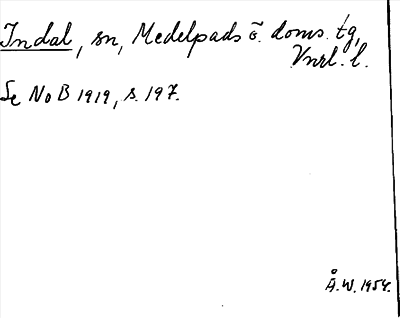 Indal, sn, Medelpads ö. doms. tg,
Vnrl. l.
Se NoB 1919, s. 197.
Å.W. 1954.